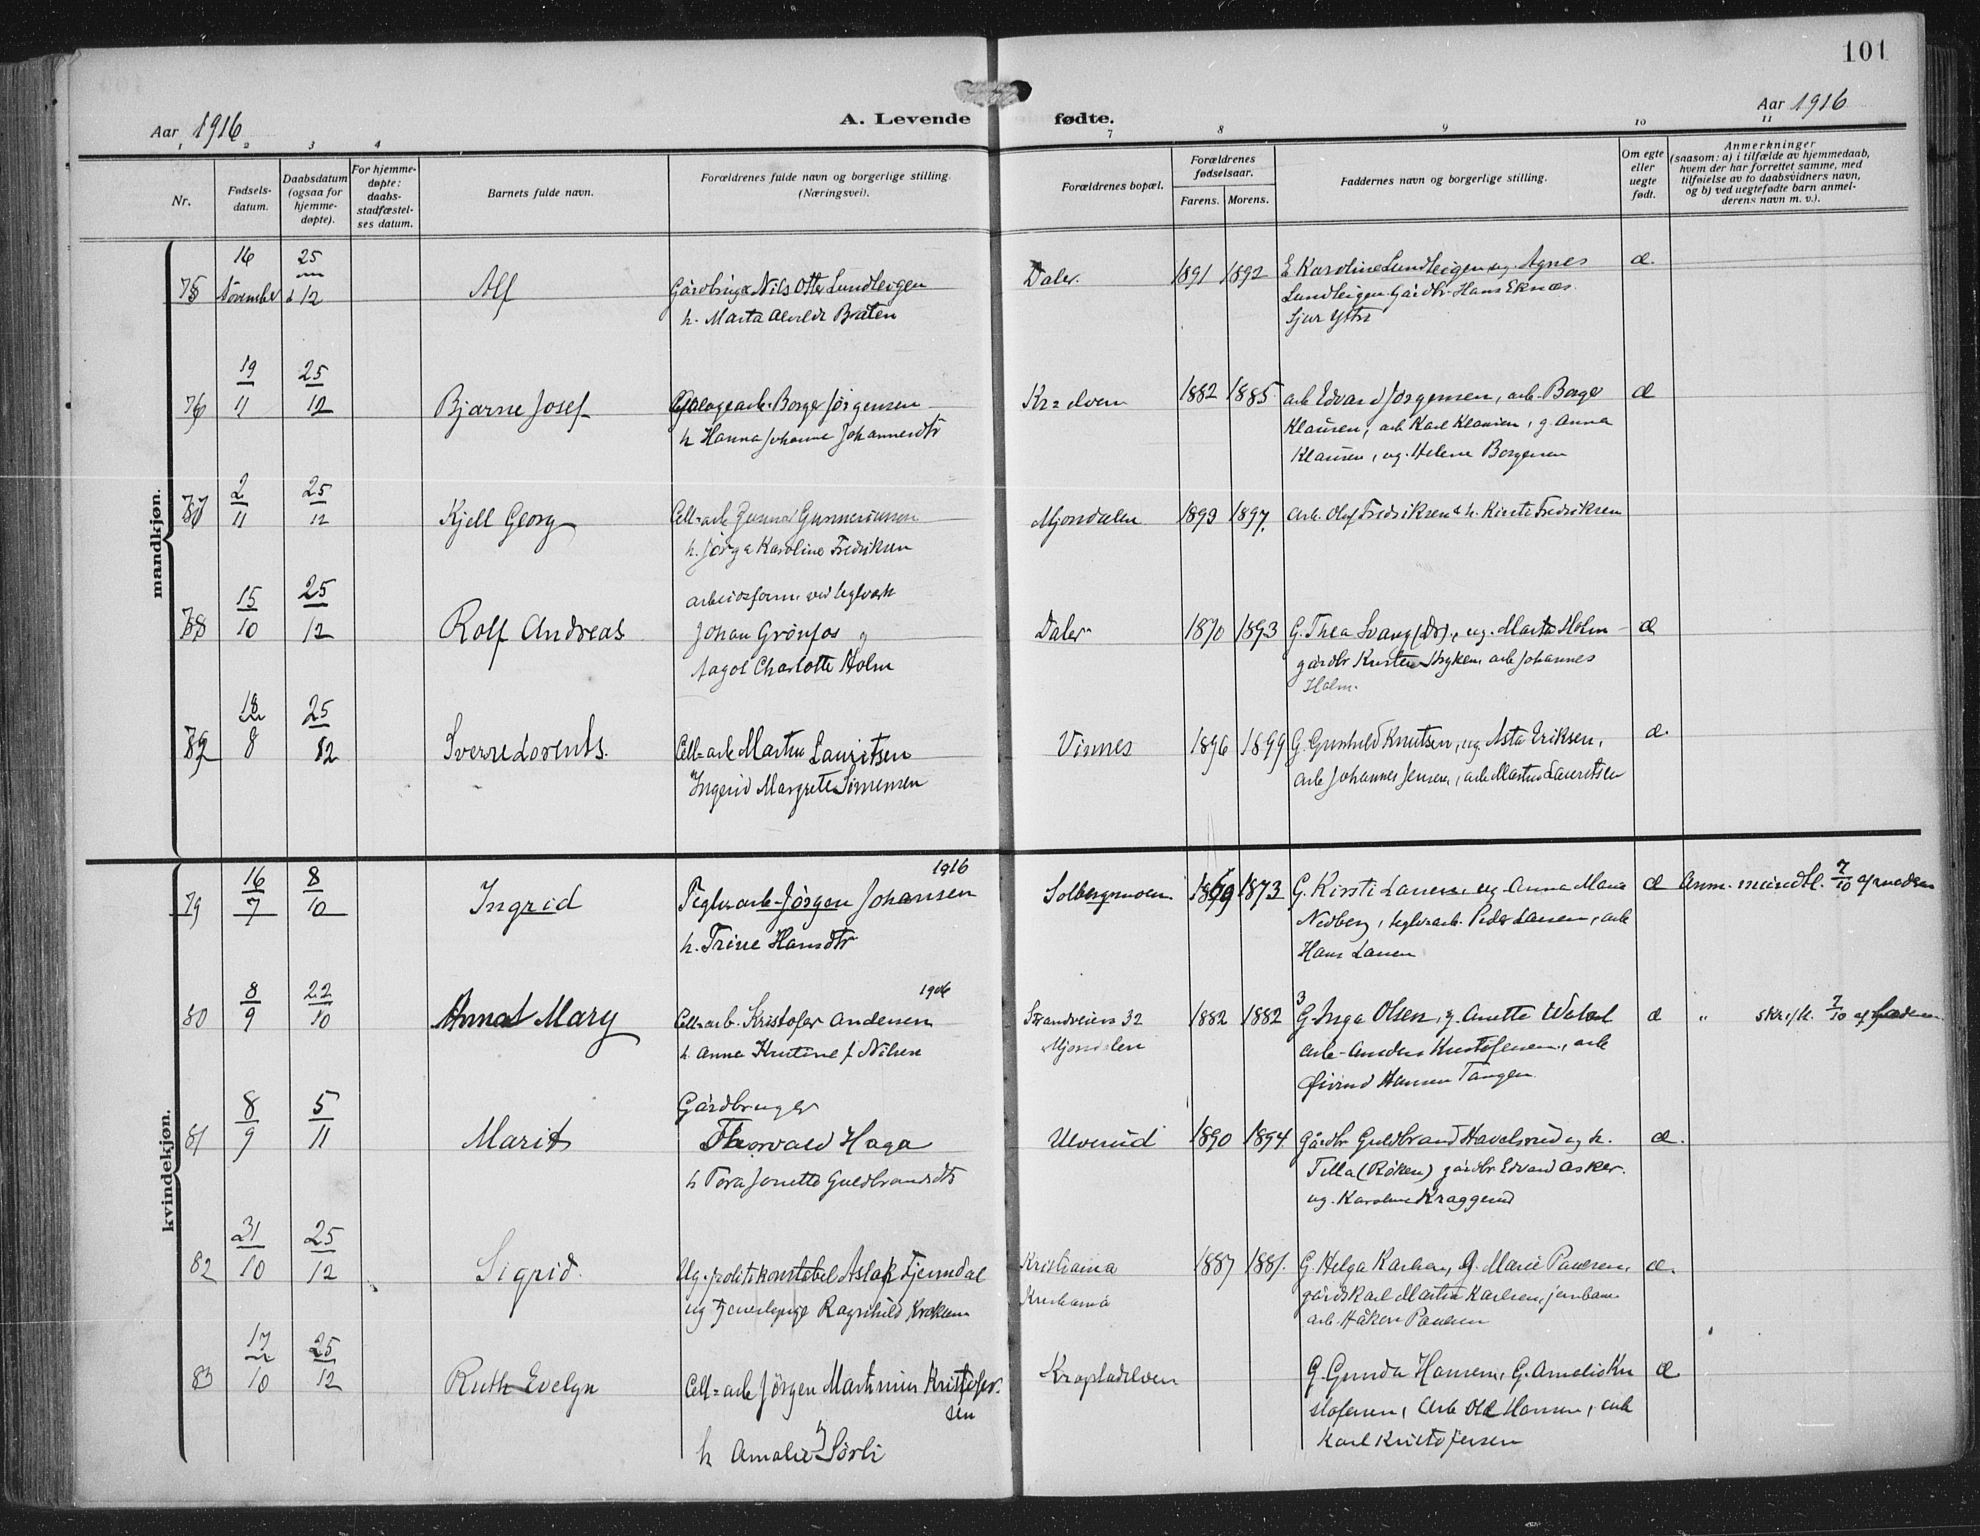 101
Aar 1916
A. Levende fødte.
Aar 1916
1 2 3 4 7 8 9 10 11
Nr.
Fødsels-datum.
Daabsdatum (ogsaa for hjemme-døpte).
For hjemme-døpte: daabs-stadfæstel-ses datum.
Barnets fulde navn.
Forældrenes fulde navn og borgerlige stilling. (Næringsvei).
Forældrenes bopæl.
Forældrenes fødselsaar.
Farens. Morens.
Faddernes navn og borgerlige stilling.
Om egte eller uegte født.
Anmerkninger
(saasom: a) i tilfælde av hjemmedaab,
hvem der har forrettet samme, med
tilføielse av to daabsvidners navn,
og b) ved uegtefødte barn anmel-
derens navn m. v.).
mandkjøn.
75 16 November 25 12 Alf
Nils Otter Lundteigen
h. Marta Alvilde Bråten
Daler. 1891 1892 E. Karoline Lundteigen ug. Agnes
Lundteigen Gårdbr. Hans Eknæs
Sjur Ytter
æ.
76 19/11 25/12 Bjarne Josef
Borge Jørgensen
h Hanna Johanne Johannesdtr
1882 1885 arb Edvard Jørgensen, arb. Borge
Klausen, arb Karl Klausen, g. Anna
Klausen, ug. Helene Borgersen
æ
77 2/11 25/12 Kjell Georg
Cell=arb Gunnar Gunnersen
h. Jørga Karoline Fredriksen
Mjøndalen 1893 1897. arb. Oluf Fredriksen & h. Kirsti Fredriksen
78 15/10 25/12 Rolf Andreas
arbeidsform. ved teglverk
Johan Grönfos og
Aagot Charlotte Holm
Daler 1870 1893 G. Thea Svang (Dr)., ug. Marta Holm
gårdbr Kristen Stryken, arb Johannes
Holm.
æ
79 18/8 25/12 Sverre Lorents.
Cell=arb Martin Lauritsen
Ingerid Margrete Sørensen
Vinnes 1896 1899 G. Gunhild Knutsen, ug Asta Eriksen,
arb Johannes Jensen, arb Martin Lauritsen
æ.
kvindekjøn.
79 16/7 8/10 1916 Ingrid
Teglv.arb. Jørgen Johansen
h. Trine Hansdtr
Solbergmoen 1873 G. Kirsti Larsen, ug Anna Marie
Nedberg, teglv.arb. Peder Larsen, arb
Hans Larsen
æ Anm. mundtl. 7/10 af moderen
80 8/9 22/10 1906 Anna Mary
Cell=arb. Kristofer Andersen
h. Anna Kristine f. Nilsen
Strandveien 32
Mjøndalen
1882 1882 3
G. Inga Olsen, g. Anette
arb- Anders Kristofersen, arb
Øivind Hansen Tangen
æ " skriftl. 7/10 af faderen
81 8/9 5/11 Marit
Gårdbruger
Thorvald Haga
h Tora Jonette Guldbrandsdtr
Ulverud 1890 1894. Gårdbr Guldbrand Havelsrud og h.
Tilla (Røken) gårdbr Edvard Asker.
ug. Karoline Kraggerud
æ.
82 31/10 25/12 Sigrid.
Ug. politikonstabel Aslak Tjerndal
ug Tjenestepige Ragnhild Krokum
Kristiania
Kristiania
1887 1881. G. Helga Karlsen, G. Marie Paulsen,
gårdskarl Martin Karlsen, jernbane
arb. Håkon Paulsen
æ.
83 17/10 25/12 Ruth Evelyn
Cell=arb Jørgen Martinius Kristofer-
sen
h Amalie f Sørli
Krogstadelven
G. Gunda Hansen, G. Amalie Kri
stofersen, arb Ole Hansen, arb
Karl Kristofersen
æ